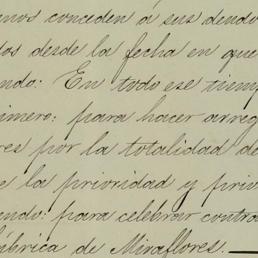 enos conceden á sus deudo
os desde la fecha en que
ando: En todo ese tiemp
rimero: para hacer arreg
res por la totalidad de
e la prioridad y priv
undo: para celebrar contra
fábrica de Miraflores.